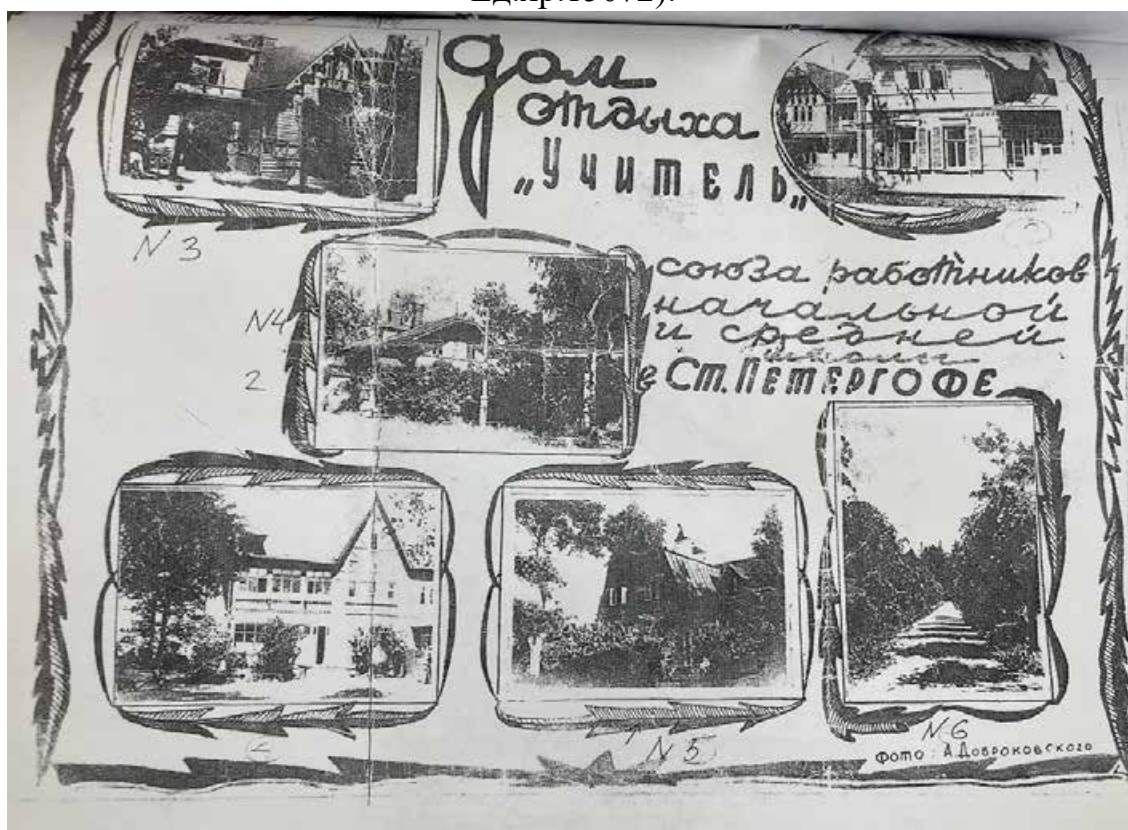 Дом
отдыха
„Учитель„
союза работников
начальной
и средней
школы
в Ст. ПЕТЕРГОФЕ
N 3
N4
2
N 5
N 6
Фото: А Доброковского